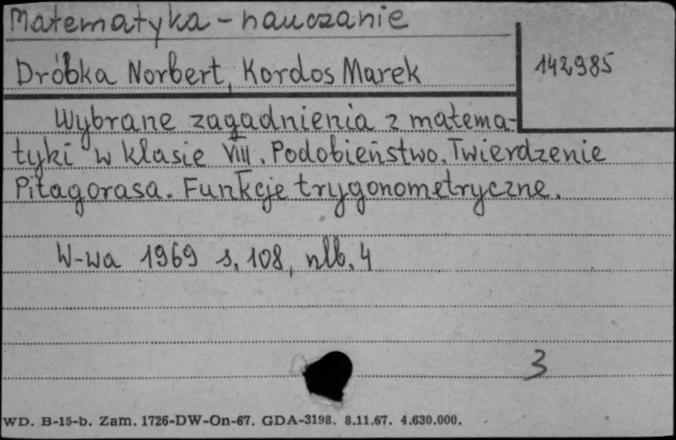 Matematyka - nauczanie
Dróbka Norbert, Kordos Marek
142985
Wybrane zagadnienia z matema-
tyki w klasie VIII. Podobieństwo. Twierdzenie
Pitagorasa. Funkcje trygonometryczne.
W-wa 1969 s. 108, nlb. 4
3
WD. B-15-b. Zam. 1726-DW-On-67. GDA-3198. 8.11.67. 4.630.000.